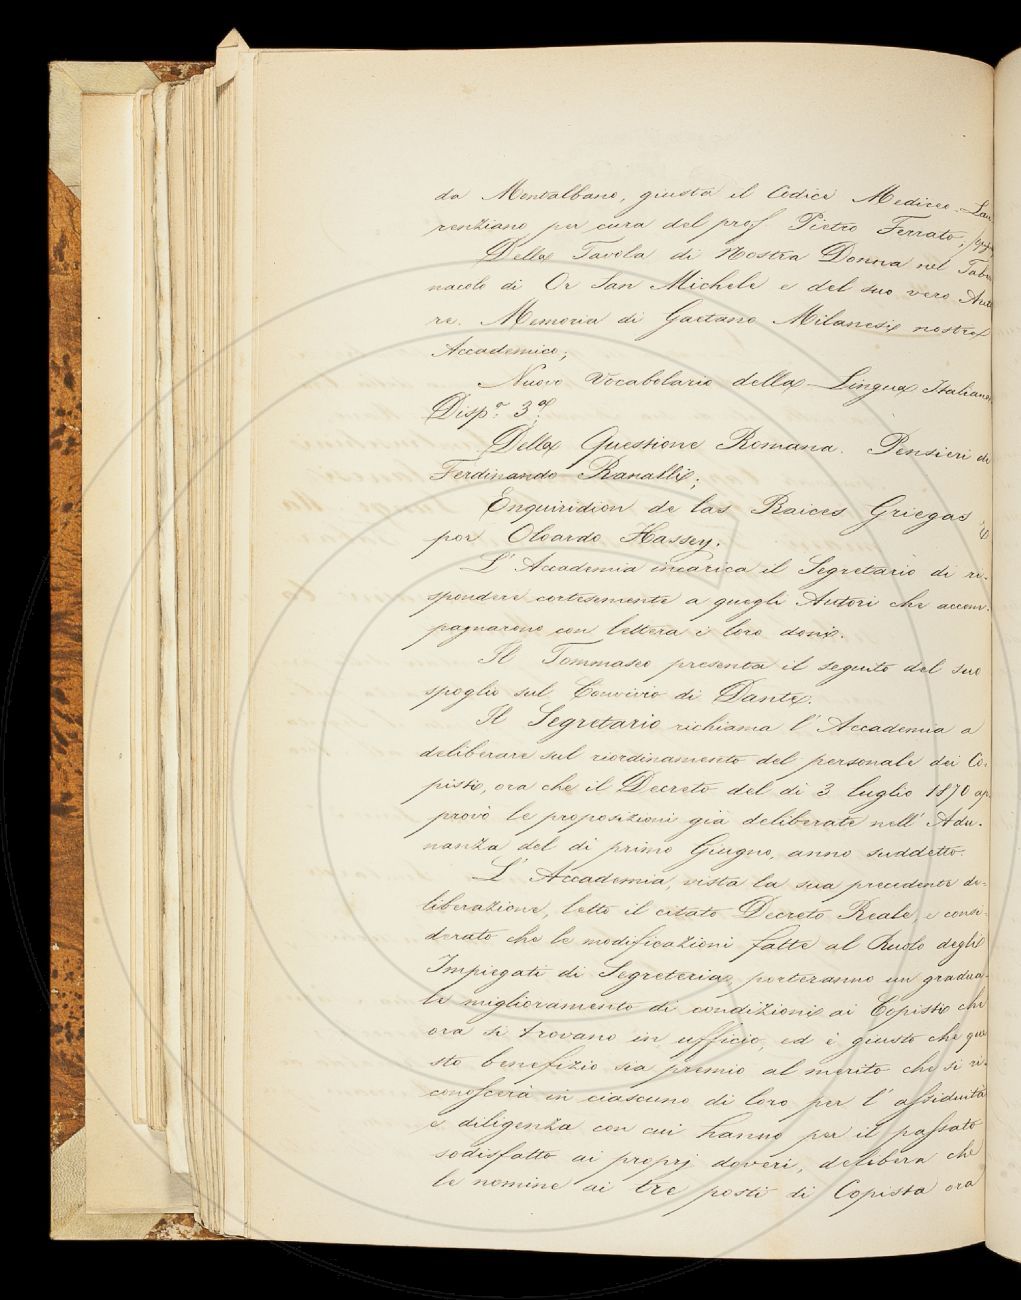 da Montalbano, giusta il Codice Mediceo-Lau
renziano per cura del prof. Pietro Ferrato;
Della Tavola di Nostra Donna nel Taber
nacolo di Or San Michele e del suo vero Auto
re. Memoria di Gaetano Milanesi nostro
Accademico;
Nuovo Vocabolario della Lingua Italiana,
Disp.ª 3ª.
Della Questione Romana. Pensieri di
Ferdinando Ranalli;
Enquiridion de las Raices Griegas
por Oloardo Hassey.
L'Accademia incarica il Segretario di ri-
spondere cortesemente a quegli Autori che accom-
pagnarono con lettera i loro doni.
Il Tommaseo presenta il seguito del suo
spoglio sul Convivio di Dante.
Il Segretario richiama l'Accademia a
deliberare sul riordinamento del personale dei Co-
pisti, ora che il Decreto del dì 3 luglio 1870 ap-
provò le proposizioni già deliberate nell'Adu-
nanza del dì primo Giugno, anno suddetto.
L'Accademia, vista la sua precedente de-
liberazione, letto il citato Decreto Reale, e consi-
derato che le modificazioni fatte al Ruolo degli
Impiegati di Segreteria, porteranno un gradua-
le miglioramento di condizioni ai Copisti che
ora si trovano in ufficio, ed è giusto che que
sto benefizio sia premio al merito che si ri-
conoscerà in ciascuno di loro per l'assiduità
e diligenza con cui hanno per il passato
sodisfatto ai proprj doveri, delibera che
le nomine ai tre posti di Copista ora